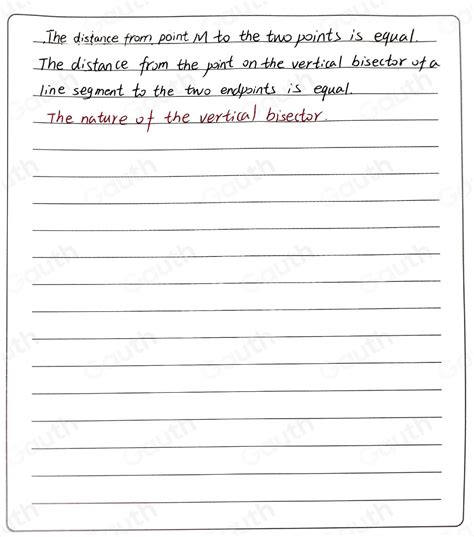 The distance from point M to the two points is equal.
The distance from the point on the vertical bisector of a
line segment to the two endpoints is equal.
The nature of the vertical bisector.